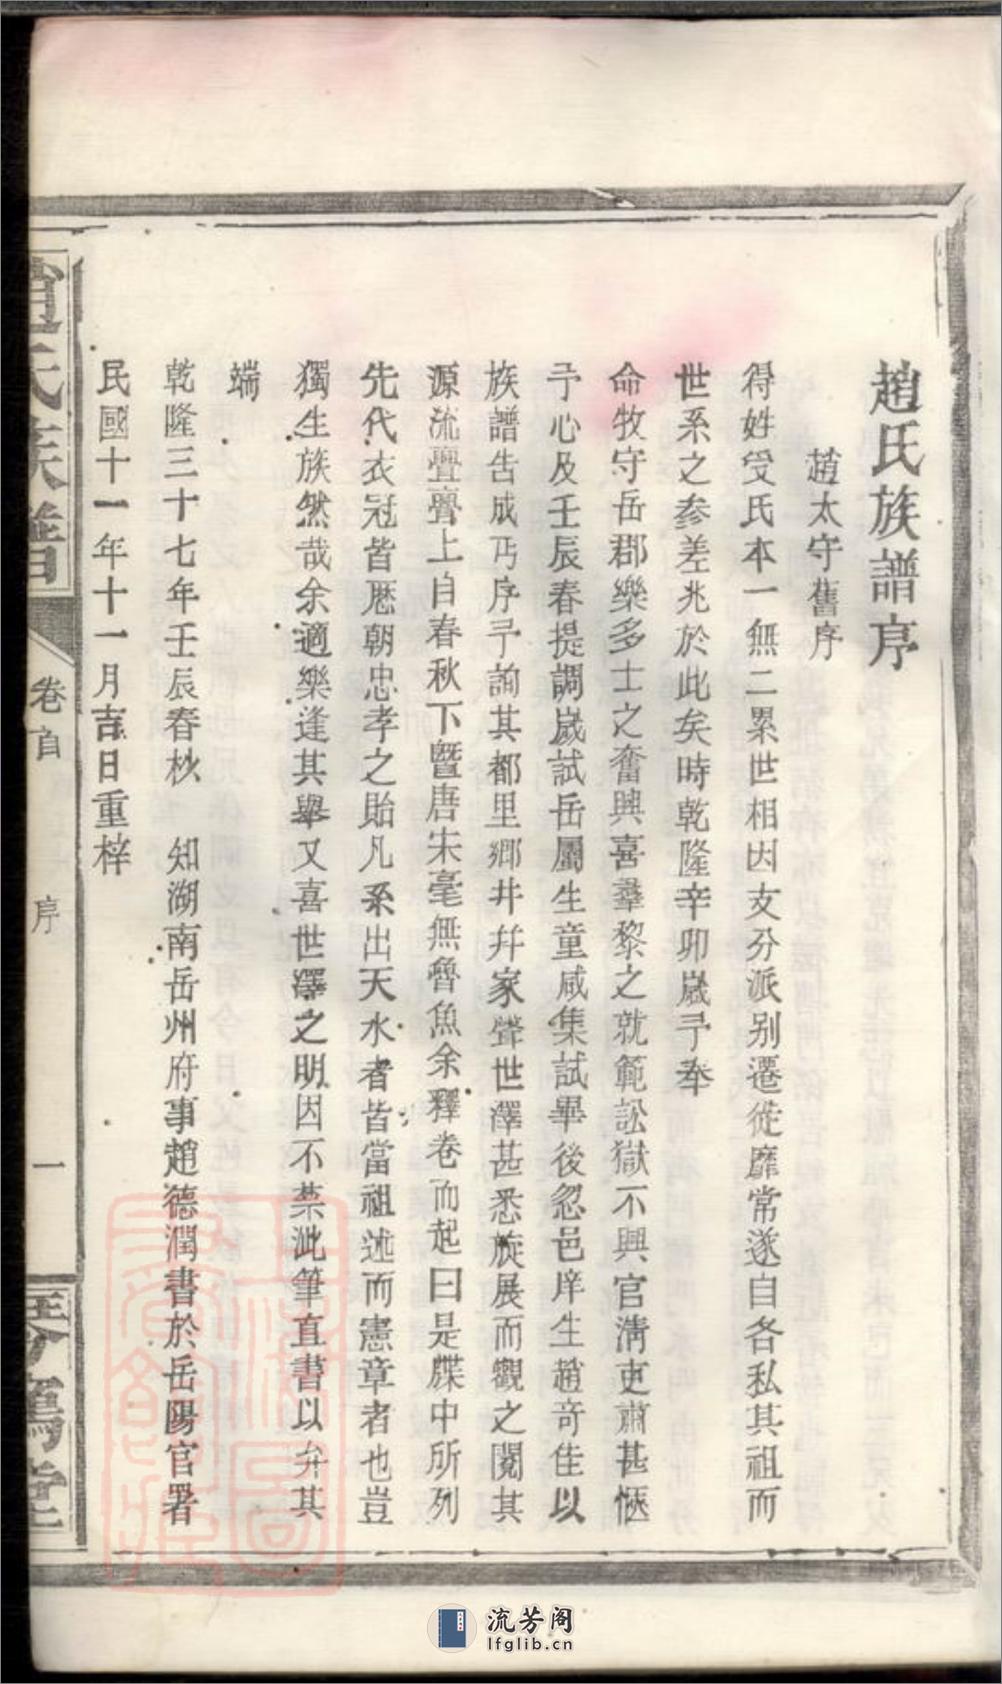 趙氏族譜序
趙太守舊序
得姓受氏本一無二累世相因支分派别遷徙靡常遂自各私其祖而
世系之參差兆於此矣時乾隆辛卯歲予奉
命牧守岳郡樂多士之奮興喜羣黎之就範訟獄不興官淸吏肅甚愜
予心及壬辰春提調歲試岳屬生童咸集試畢後忽邑庠生趙奇佳以
族譜吿成丐序予詢其都里鄉井幷家聲世澤甚悉旋展而觀之閱其
源流亹亹上自春秋下曁唐宋毫無魯魚余釋卷而起曰是牒中所列
先代衣冠皆歷朝忠孝之貽凡系出天水者皆當祖述而憲章者也豈
獨生族然哉余適樂逢其舉又喜世澤之明因不禁泚筆直書以弁其
端
乾隆三十七年壬辰春杪 知湖南岳州府事趙德潤書於岳陽官署
民國十一年十一月吉日重梓
趙氏族譜
卷首
序
一
琴鶴堂
流芳阁
lfglib.cn